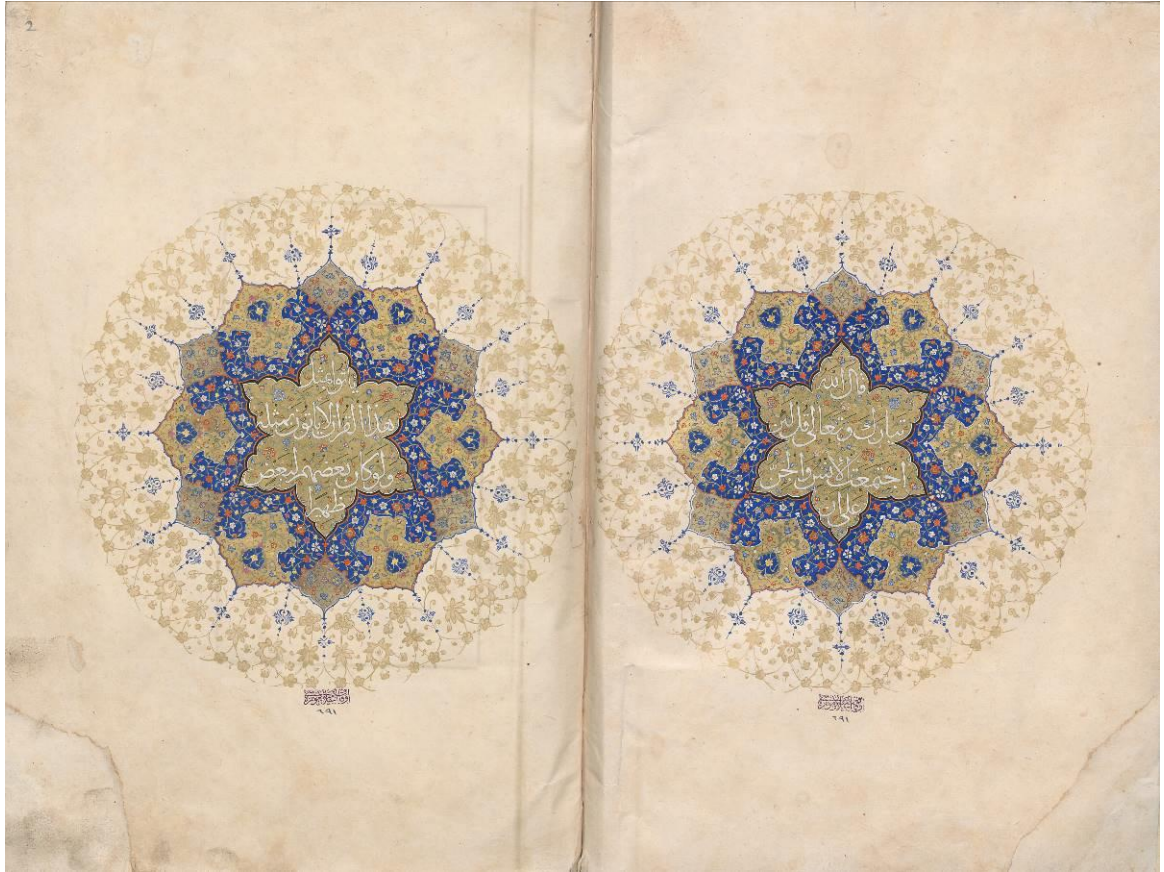 قال الله
تبارك وتعالى قل لئن
اجتمعت الانس والجن
على ان
ياتوا بمثل
هذا القران لا ياتون بمثله
ولو كان بعضهم لبعض
ظهيرا
٦٩١
٦٩١
2